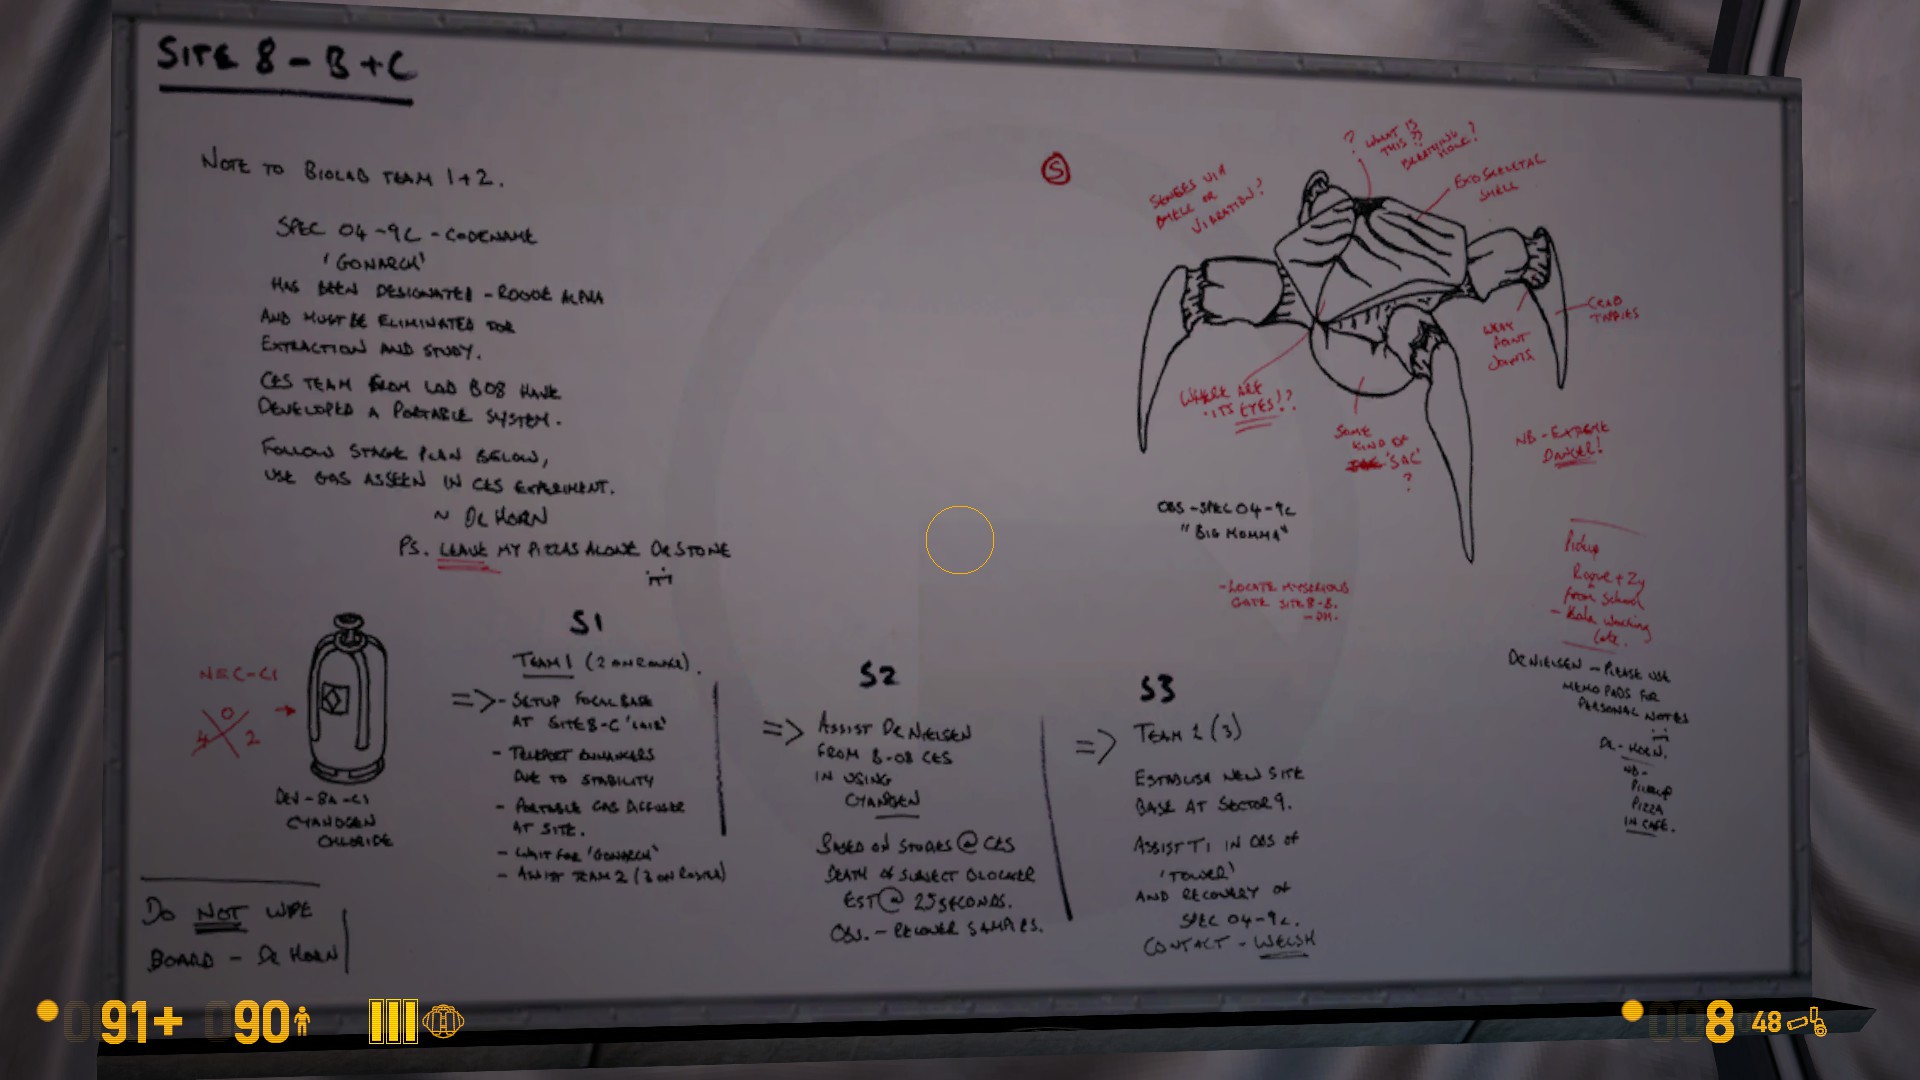 SITE 8 - B + C
NOTE TO BIOLAB TEAM 1+2.
SPEC 04-9C - CODENAME
'GONARCH'
HAS BEEN DESIGNATED - ROGUE ALPHA
AND MUST BE ELIMINATED FOR
EXTRACTION AND STUDY.
CES TEAM FROM LAB B08 HAVE
DEVELOPED A PORTABLE SYSTEM.
FOLLOW STAGE PLAN BELOW,
USE GAS AS SEEN IN CES EXPERIMENT.
~ DR HORN
PS. LEAVE MY PIZZAS ALONE DR STONE
S
SENSES VIA
SMELL OR
VIBRATION?
? WHAT IS
THIS ??
BREATHING
HOLE?
EXOSKELETAL
SHELL
WHERE ARE
ITS EYES!?
SOME
KIND OF
'SAC'
?
WEAK
POINT
JOINTS
CRAB
NB - EXTREME
DANGER!
OBS - SPEC 04-9C
"BIG MOMMA"
- LOCATE MYSTERIOUS
GATE SITE 8-B.
- DH.
Pickup
Rogue + Zy
from school
- working
late.
DR NIELSEN - PLEASE USE
MEMO PADS FOR
PERSONAL NOTES
DR - HORN.
NB -
PICKUP
PIZZA
IN CAFE.
NEC-C1
0
4 2
DEV-8A-C1
CYANOGEN
CHLORIDE
S1
TEAM 1 (2 ON ROUTE).
=> - SETUP FOCAL BASE
AT SITE 8-C 'LAIR'
- TELEPORT ENHANCERS
DUE TO STABILITY
- PORTABLE GAS DIFFUSER
AT SITE.
- WAIT FOR 'GONARCH'
- ASSIST TEAM 2 (3 ON ROUTE)
S2
=> ASSIST DR NIELSEN
FROM B-08 CES
IN USING
CYANOGEN
BASED ON STUDIES @ CES
DEATH OF SUBJECT BLOCKER
EST @ 25 SECONDS.
OBS. - RECOVER SAMPLES.
S3
=> TEAM 2 (3)
ESTABLISH NEW SITE
BASE AT SECTOR 9.
ASSIST T1 IN OBS OF
'TOWER'
AND RECOVERY OF
SPEC 04-9C.
CONTACT - WELSH
DO NOT WIPE
BOARD - DR HORN
091+ 090
008 048